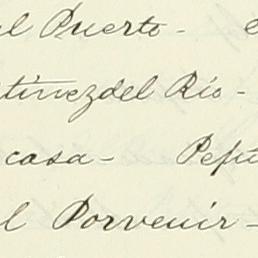 el Puerto -
tínez del Río -
casa - Pepi
l Porvenir -